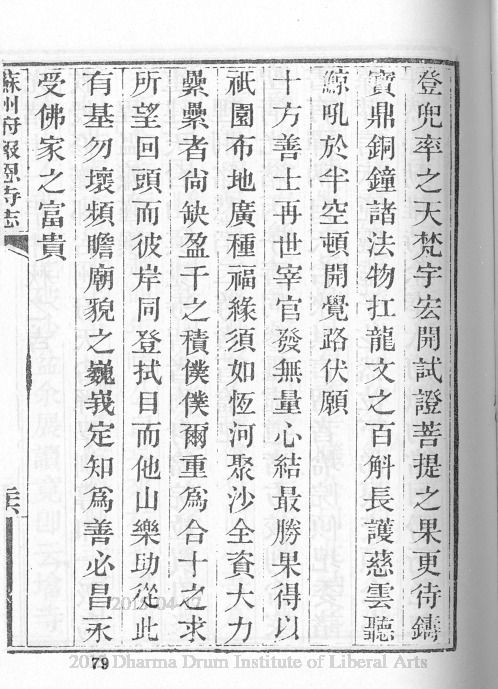 登兜率之天梵宇宏開試證菩提之果更待鑄
寶鼎銅鐘諸法物扛龍文之百斛長護慈雲聽
鯨吼於半空頓開覺路伏願
十方善士再世宰官發無量心結最勝果得以
祇園布地廣種福緣須如恆河聚沙全資大力
纍纍者尙缺盈千之積僕僕爾重爲合十之求
所望回頭而彼岸同登拭目而他山樂助從此
有基勿壞頻瞻廟貌之巍峩定知爲善必昌永
受佛家之富貴
蘇州府報恩寺志
79
Dharma Drum Institute of Liberal Arts